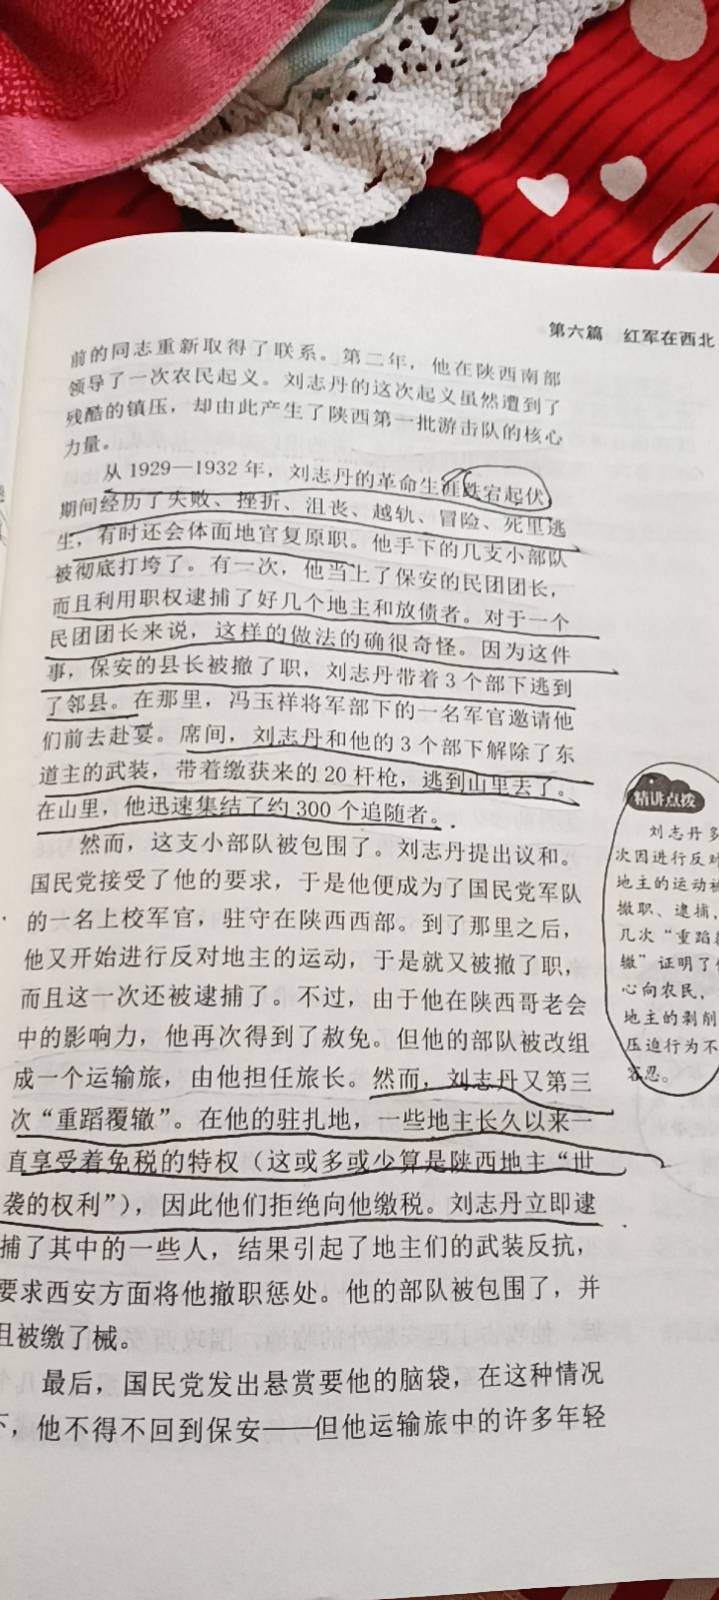 第六篇 红军在西北
前的同志重新取得了联系。第二年，他在陕西南部
领导了一次农民起义。刘志丹的这次起义虽然遭到了
残酷的镇压，却由此产生了陕西第一批游击队的核心
力量。
从1929—1932年，刘志丹的革命生涯跌宕起伏，
期间经历了失败、挫折、沮丧、越轨、冒险、死里逃
生，有时还会体面地官复原职。他手下的几支小部队
被彻底打垮了。有一次，他当上了保安的民团团长，
而且利用职权逮捕了好几个地主和放债者。对于一个
民团团长来说，这样的做法的确很奇怪。因为这件
事，保安的县长被撤了职，刘志丹带着3个部下逃到
了邻县。在那里，冯玉祥将军部下的一名军官邀请他
们前去赴宴。席间，刘志丹和他的3个部下解除了东
道主的武装，带着缴获来的20杆枪，逃到山里去了。
在山里，他迅速集结了约300个追随者。
然而，这支小部队被包围了。刘志丹提出议和。
国民党接受了他的要求，于是他便成为了国民党军队
的一名上校军官，驻守在陕西西部。到了那里之后，
他又开始进行反对地主的运动，于是就又被撤了职，
而且这一次还被逮捕了。不过，由于他在陕西哥老会
中的影响力，他再次得到了赦免。但他的部队被改组
成一个运输旅，由他担任旅长。然而，刘志丹又第三
次“重蹈覆辙”。在他的驻扎地，一些地主长久以来一
直享受着免税的特权（这或多或少算是陕西地主“世
袭的权利”），因此他们拒绝向他缴税。刘志丹立即逮
捕了其中的一些人，结果引起了地主们的武装反抗，
要求西安方面将他撤职惩处。他的部队被包围了，并
且被缴了械。
最后，国民党发出悬赏要他的脑袋，在这种情况
下，他不得不回到保安——但他运输旅中的许多年轻
精讲点拨
刘志丹多
次因进行反对
地主的运动被
撤职、逮捕，
几次“重蹈覆
辙”证明了
心向农民，
地主的剥削
压迫行为不
容忍。